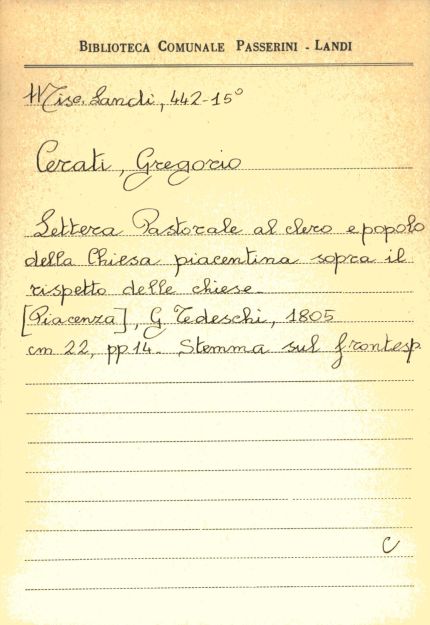 BIBLIOTECA COMUNALE PASSERINI - LANDI
Misc. Landi, 442-15°
Cerati, Gregorio
Lettera Pastorale al clero e popolo
della Chiesa piacentina sopra il
rispetto delle chiese.
[Piacenza], G. Tedeschi, 1805
cm 22, pp. 14. Stemma sul frontesp.
C